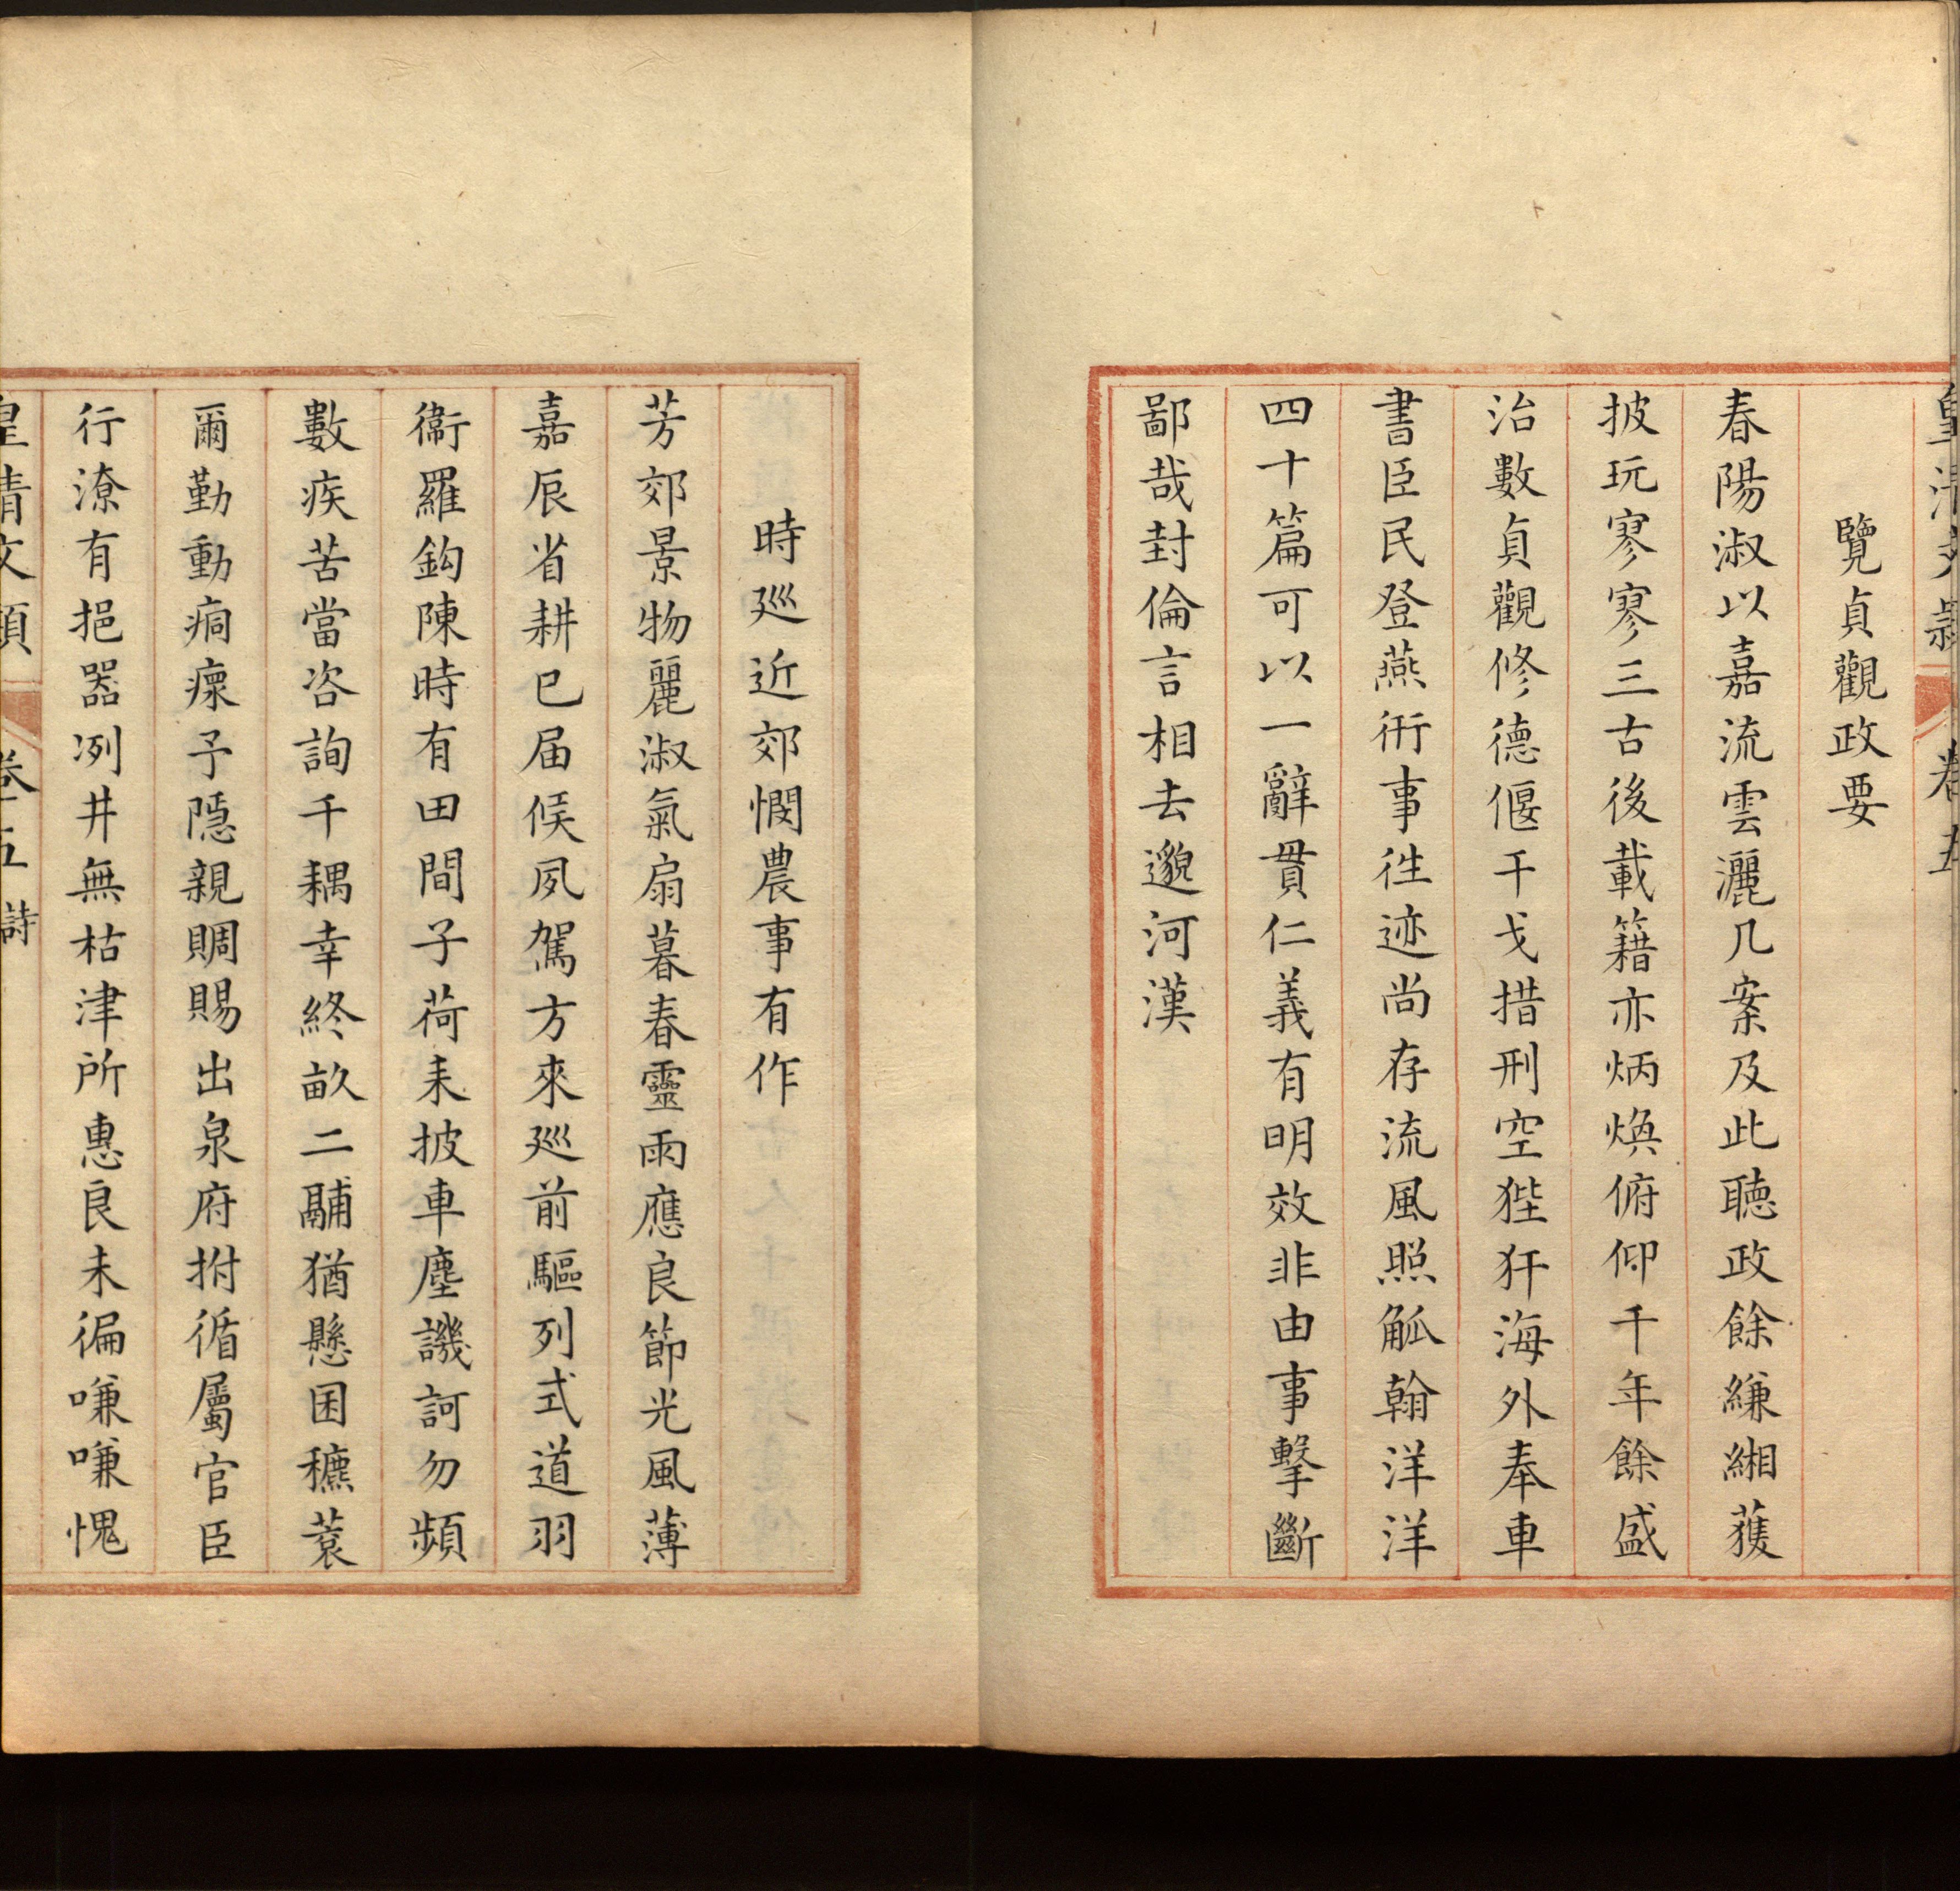 皇清文潁 卷五
覽貞觀政要
春陽淑以嘉流雲灑几案及此聽政餘縑緗獲
披玩寥寥三古後載籍亦炳煥俯仰千年餘盛
治數貞觀修德偃干戈措刑空狴犴海外奉車
書臣民登燕衎事徃迹尚存流風照觚翰洋洋
四十篇可以一辭貫仁義有明效非由事擊斷
鄙哉封倫言相去邈河漢
時廵近郊憫農事有作
芳郊景物麗淑氣扇暮春靈雨應良節光風薄
嘉辰省耕已届候夙駕方來廵前驅列式道羽
衞羅鈎陳時有田間子荷耒披車塵譏訶勿頻
數疾苦當咨詢千耦幸終畝二鬴猶懸囷穮蓘
爾勤動痌瘝予隱親賙賜出泉府拊循屬官臣
行潦有挹器冽井無枯津所惠良未徧嗛嗛愧
皇清文潁 卷五 詩